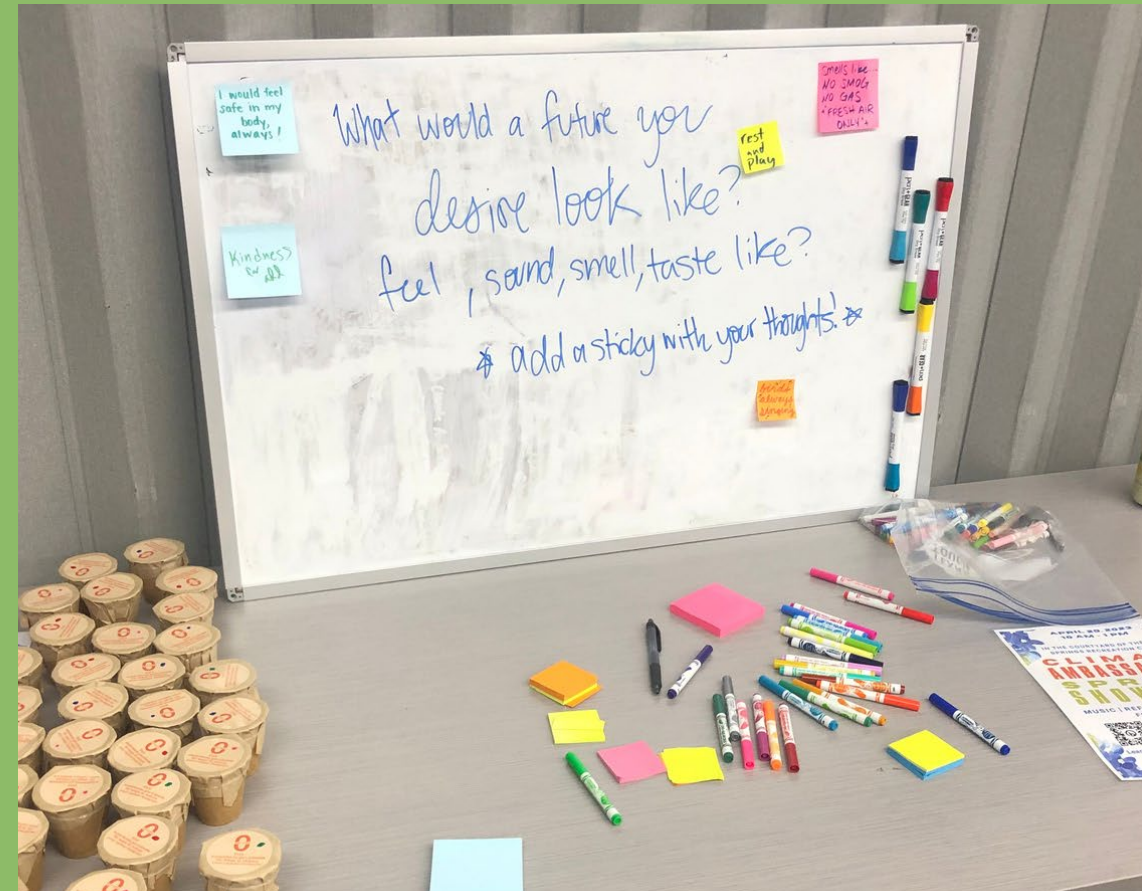 I would feel
safe in my
body,
always!
Kindness
for all
What would a future you
desire look like?
feel, sound, smell, taste like?
* add a sticky with your thoughts! *
rest
and
play
smells like...
NO SMOG
NO GAS
*FRESH AIR
ONLY*
birds
always
singing
APRIL 29, 2023
10 AM - 1 PM
IN THE COURTYARD OF TH
SPRINGS RECREATION C
CLIMA
AMBASS
SPR
SHOW
MUSIC | RE